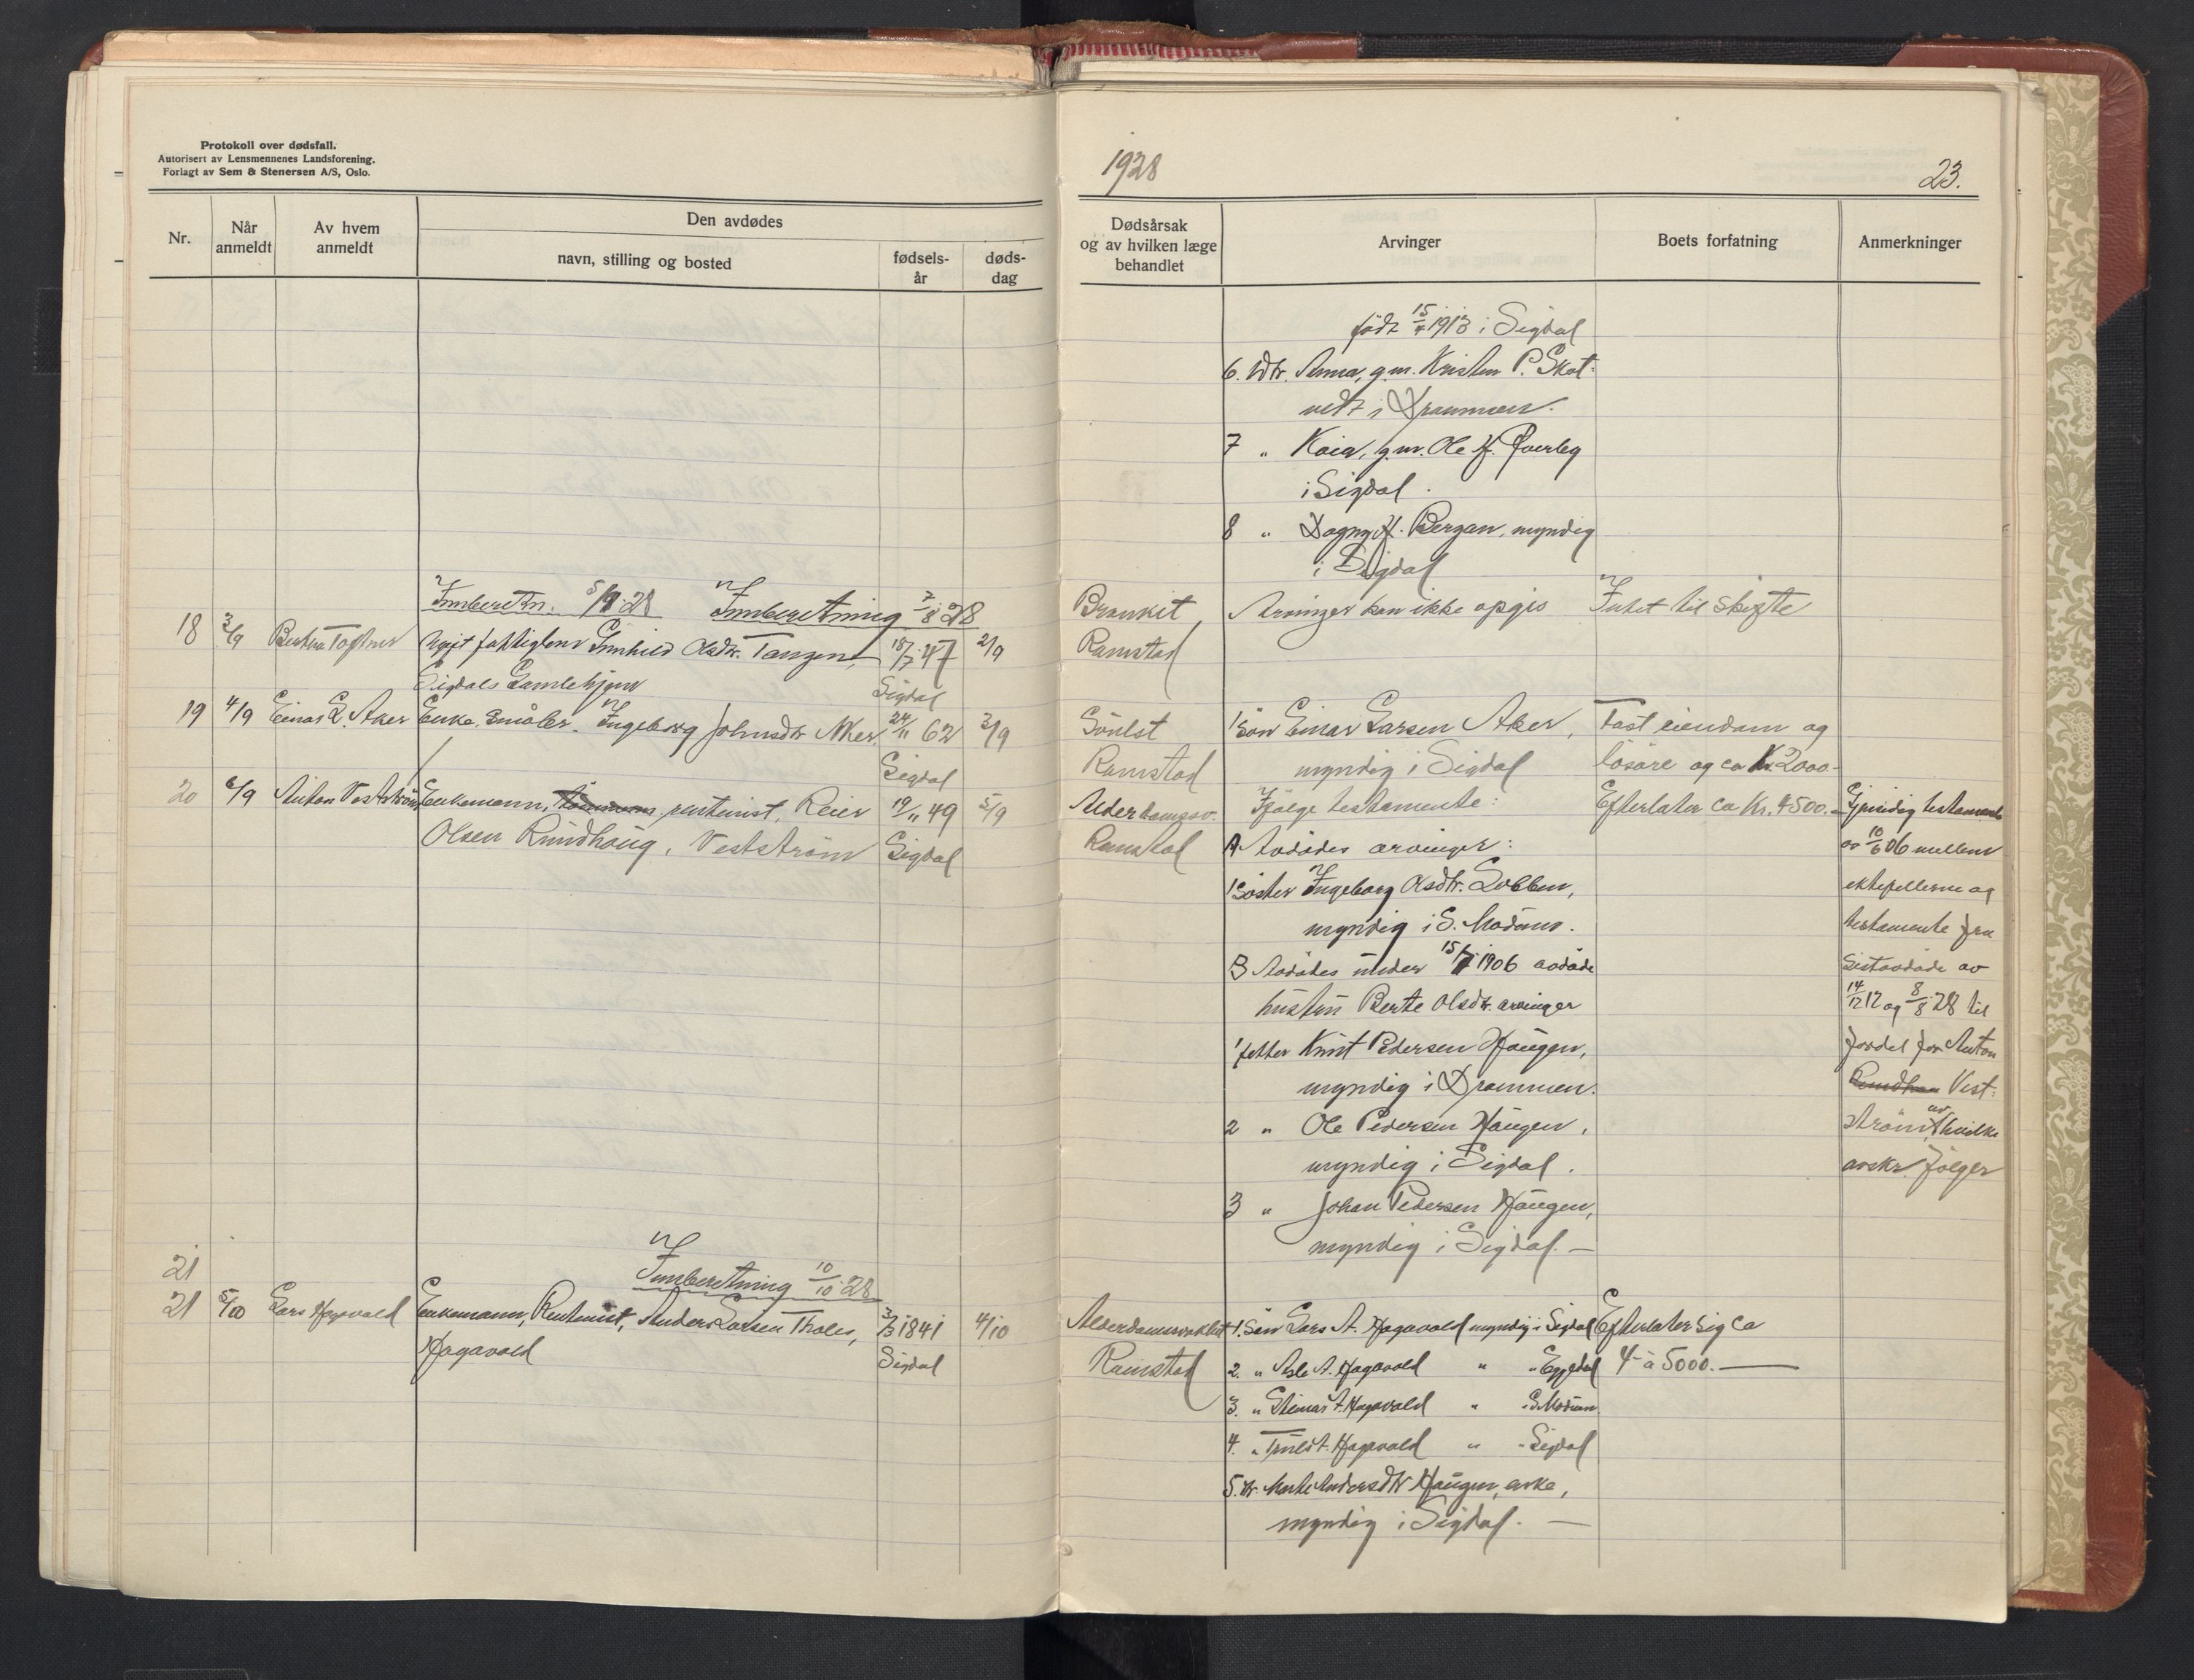 Protokoll over dødsfall.
Autorisert av Lensmennenes Landsforening.
Forlagt av Sem & Stenersen A/S, Oslo.
Nr.
Når anmeldt
Av hvem anmeldt
Den avdødes
navn, stilling og bosted
fødsels-år
døds-dag
Innberetn. 5/9 28 Innberetning 7/8 28
18 3/9 Ugift fattiglem Gunhild Olsdtr. Tangen, 18/7 47 2/9
Sigdals Gamlehjem Sigdal
19 4/9 Einar L. Aker Enke, småbr. Ingeborg Johnsdtr Aker. 24/11 62 3/9
Sigdal
20 6/9 Anton Vestström Enkemann, rentenist, Reier 19/11 49 5/9
Olsen Rundhaug, Vestström Sigdal
21
Innberetning 10/10 28
21 5/10 Lars Hagavold Enkemann, Rentenist, Anders Larsen Tholes, 3/3 1841 4/10
Hagavold Sigdal
1928
23.
Dødsårsak og av hvilken læge behandlet
Arvinger
Boets forfatning
Anmerkninger
født 15/4 1913 i Sigdal
6. Dtr. Anna, g.m. Kristen P. Skot-
vedt i Drammen.
7 " Kaia, g.m. Ole H. Överby
i Sigdal.
8 " Dagny H. Bergan, myndig
i Sigdal
Bronkit, Arvinger kan ikke opgis Intet til skifte
Ramstad
1 Sön Einar Larsen Aker, Fast eiendom og
Ramstad myndig i Sigdal lösöre og ca Kr. 2000.-
Alderdomssv. Ifölge testamente: Efterlater ca Kr. 4500.- Gjensidig testamente
Ramstad A Avdödes arvinger: av 10/6 06 mellem
1 Söster Ingeborg Olsdtr. Lobben, ektefellerne og
myndig i S. Modum. testamente fra
B Avdödes under 15/7 1906 avdöde sistavdöde av
hustru Berte Olsdtr. arvinger 14/12 12 og 8/8 28 til
1 fetter Knut Pedersen Haugen, fordel for Anton
myndig i Drammen. Vest-
2 " Ole Pedersen Haugen, ström, av hvilke
myndig i Sigdal. avskr. fölger
3 " Johan Pedersen Haugen,
myndig i Sigdal. —
Alderdomssvakhet 1. Sön Lars A. Hagavold myndig i Sigdal Efterlater sig ca
Ramstad 2. " Asle A. Hagavold " " Eggedal 4- à 5000. —
3. " Steinar A. Hagavold " " S. Modum
4. " Truls A. Hagavold " " Sigdal
5. Dtr. Marte Andersdtr Haugen, enke,
myndig i Sigdal. —